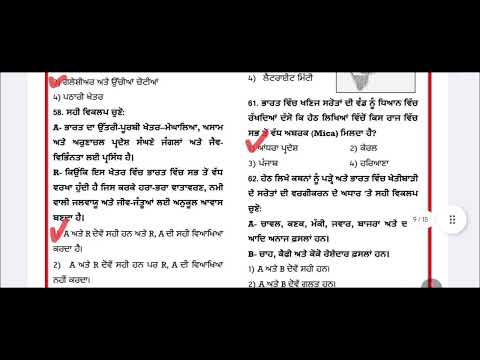 ਗਲੇਸ਼ੀਅਰ ਅਤੇ ਉੱਚੀਆਂ ਚੋਟੀਆਂ
4) ਪਠਾਰੀ ਖੇਤਰ
58. ਸਹੀ ਵਿਕਲਪ ਚੁਣੋ:
A- ਭਾਰਤ ਦਾ ਉੱਤਰੀ-ਪੂਰਬੀ ਖੇਤਰ–ਮੇਘਾਲਿਆ, ਅਸਾਮ
ਅਤੇ ਅਰੁਣਾਚਲ ਪ੍ਰਦੇਸ਼ ਸੰਘਣੇ ਜੰਗਲਾਂ ਅਤੇ ਜੈਵ-
ਵਿਭਿੰਨਤਾ ਲਈ ਪ੍ਰਸਿੱਧ ਹੈ।
R- ਕਿਉਂਕਿ ਇਸ ਖੇਤਰ ਵਿੱਚ ਭਾਰਤ ਵਿੱਚ ਸਭ ਤੋਂ ਵੱਧ
ਵਰਖਾ ਹੁੰਦੀ ਹੈ ਜਿਸ ਕਰਕੇ ਹਰਾ-ਭਰਾ ਵਾਤਾਵਰਣ, ਨਮੀ
ਵਾਲੀ ਜਲਵਾਯੂ ਅਤੇ ਜੀਵ-ਜੰਤੂਆਂ ਲਈ ਅਨੁਕੂਲ ਆਵਾਸ
ਬਣਦਾ ਹੈ।
A ਅਤੇ R ਦੋਵੇਂ ਸਹੀ ਹਨ ਅਤੇ R, A ਦੀ ਸਹੀ ਵਿਆਖਿਆ
ਕਰਦਾ ਹੈ।
2) A ਅਤੇ R ਦੋਵੇਂ ਸਹੀ ਹਨ ਪਰ R, A ਦੀ ਵਿਆਖਿਆ
ਨਹੀਂ ਕਰਦਾ।
4) ਲੈਟਰਾਈਟ ਮਿੱਟੀ
61. ਭਾਰਤ ਵਿੱਚ ਖਣਿਜ ਸਰੋਤਾਂ ਦੀ ਵੰਡ ਨੂੰ ਧਿਆਨ ਵਿੱਚ
ਰੱਖਦਿਆਂ ਦੱਸੋ ਕਿ ਹੇਠ ਲਿਖਿਆਂ ਵਿੱਚੋਂ ਕਿਸ ਰਾਜ ਵਿੱਚ
ਸਭ ਤੋਂ ਵੱਧ ਅਬਰਕ (Mica) ਮਿਲਦਾ ਹੈ?
ਆਂਧਰਾ ਪ੍ਰਦੇਸ਼ 2) ਕੇਰਲ
3) ਪੰਜਾਬ 4) ਹਰਿਆਣਾ
62. ਹੇਠ ਲਿਖੇ ਕਥਨਾਂ ਨੂੰ ਪੜ੍ਹੋ ਅਤੇ ਭਾਰਤ ਵਿੱਚ ਖੇਤੀਬਾੜੀ
ਦੇ ਸਰੋਤਾਂ ਦੀ ਵਰਗੀਕਰਨ ਦੇ ਅਧਾਰ 'ਤੇ ਸਹੀ ਵਿਕਲਪ
ਚੁਣੋ:
A- ਚਾਵਲ, ਕਣਕ, ਮੱਕੀ, ਜਵਾਰ, ਬਾਜਰਾ ਅਤੇ ਦ
ਆਦਿ ਅਨਾਜ ਫ਼ਸਲਾਂ ਹਨ।
B- ਚਾਹ, ਕੌਫੀ ਅਤੇ ਕੋਕੋ ਰੇਸ਼ੇਦਾਰ ਫ਼ਸਲਾਂ ਹਨ।
1) A ਅਤੇ B ਦੋਵੇਂ ਸਹੀ ਹਨ।
2) A ਅਤੇ B ਦੋਵੇਂ ਗਲਤ ਹਨ।
9 / 15